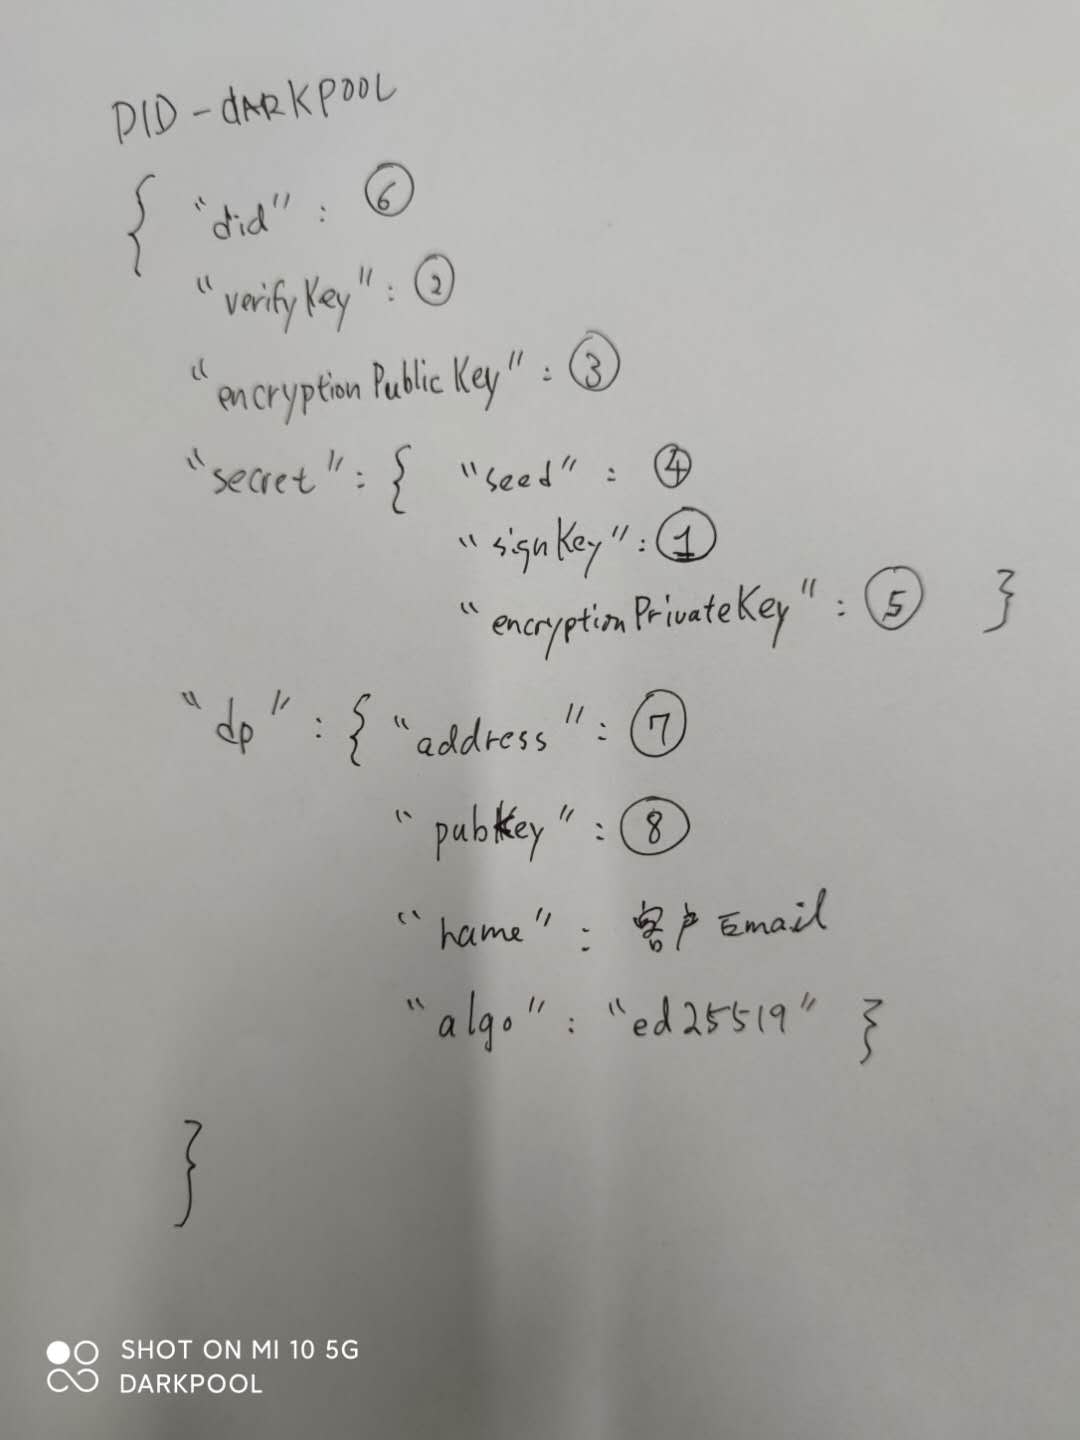 DID - dARKPOOL
{ "did" : ⑥
"verifyKey" : ②
"encryptionPublicKey" : ③
"secret" : { "seed" : ④
"signKey" : ①
"encryptionPrivateKey" : ⑤ }
"dp" : { "address" : ⑦
"pubKey" : ⑧
"name" : 客户 Email
"algo" : "ed25519" }
}
SHOT ON MI 10 5G
DARKPOOL